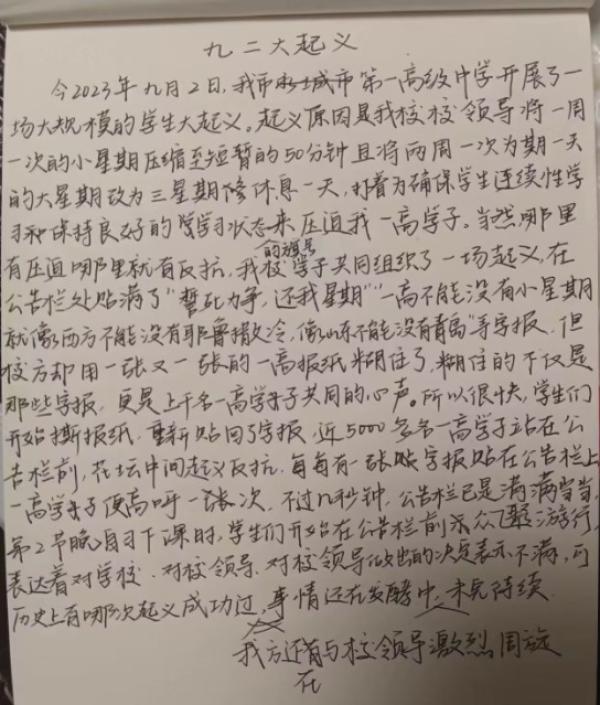 九二大起义
今2023年九月2日,我市永城市第一高级中学开展了一
场大规模的学生大起义。起义原因是我校校领导将一周
一次的小星期压缩至短暂的50分钟且将两周一次为期一天
的大星期改为三星期修休息一天,打着为确保学生连续性学
习和保持良好的学习状态来压迫我一高学子。当然哪里
的旗号
有压迫哪里就有反抗,我校学子共同组织了一场起义,在
公告栏处贴满了"誓死力争,还我星期""一高不能没有小星期
就像西方不能没有耶鲁撒冷,像山东不能没有青岛"等字报。但
校方却用一张又一张的一高报纸糊住了,糊住的不仅是
那些字报,更是上千名一高学子共同的心声。所以很快,学生们
开始撕报纸,重新贴回了字报,近5000多名一高学子站在公
告栏前,花坛中间起义反抗,每每有一张字报贴在公告栏上
一高学子便高呼一张次,不过几秒钟,公告栏已是满满当当,
第2节晚自习下课时,学生们开始在公告栏前示众飞聚游行,
表达着对学校、对校领导、对校领导做出的决定表示不满,可
历史上有哪次起义成功过,事情还在发酵中,未完待续
我方还有与校领导激烈周旋
在